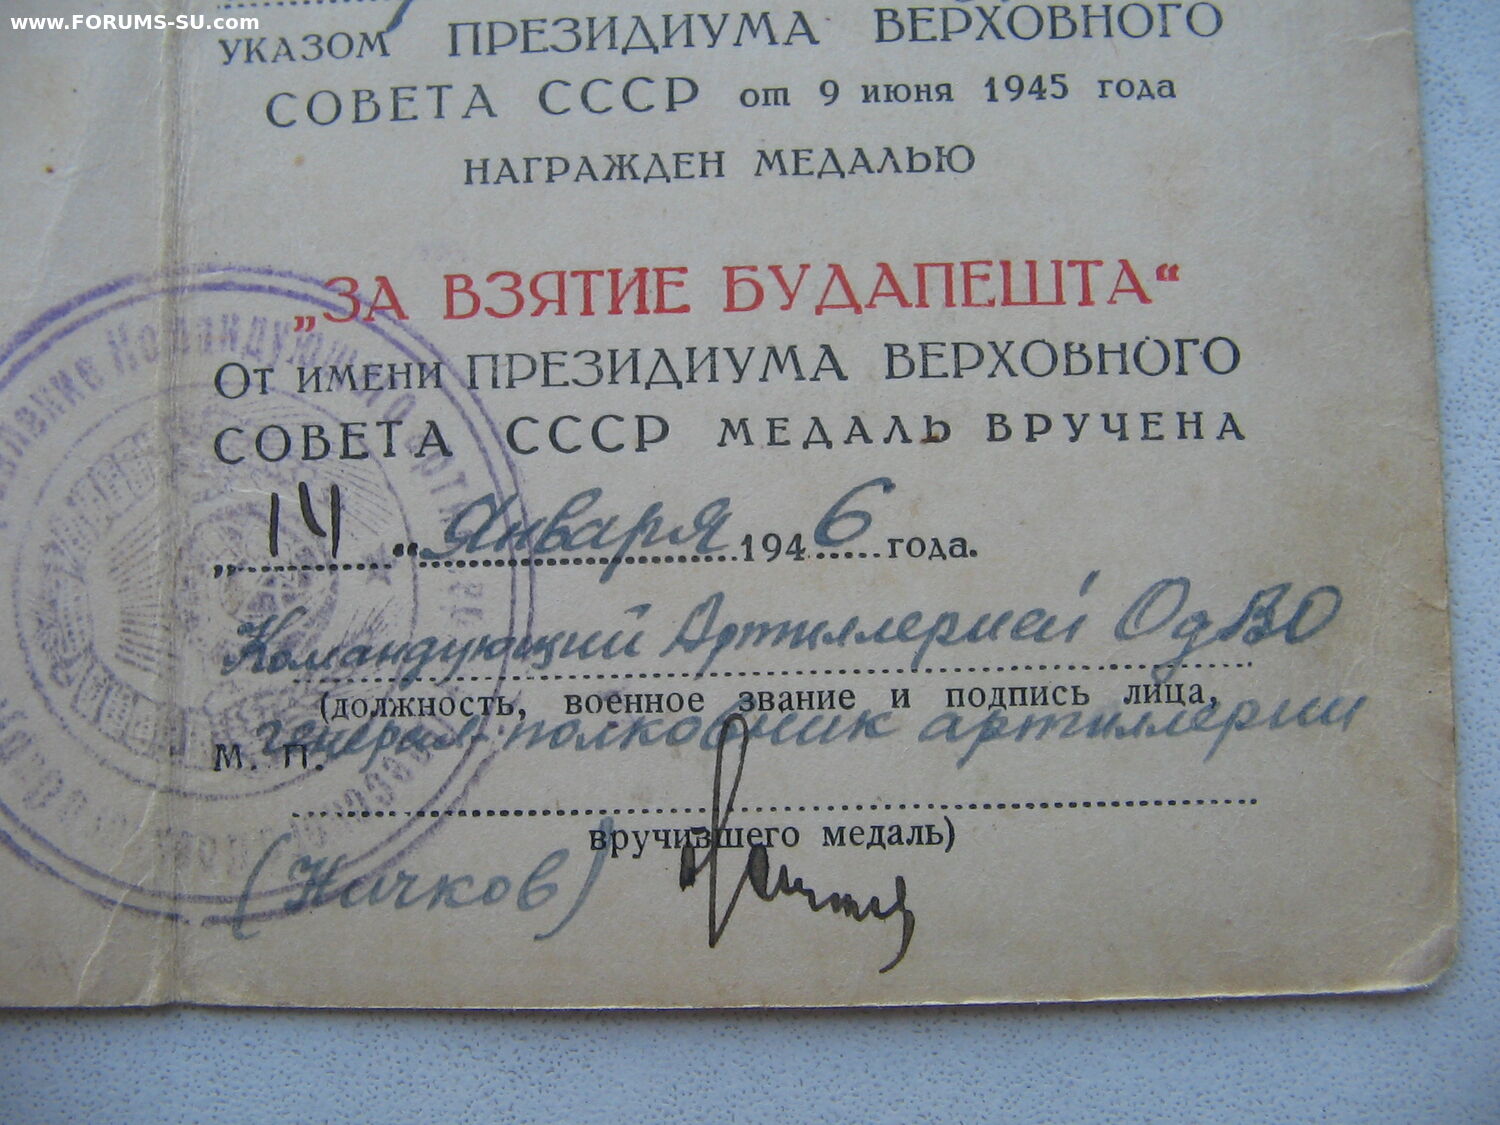 www.FORUMS-SU.com
УКАЗОМ ПРЕЗИДИУМА ВЕРХОВНОГО
СОВЕТА СССР от 9 июня 1945 года
НАГРАЖДЕН МЕДАЛЬЮ
„ЗА ВЗЯТИЕ БУДАПЕШТА“
От ИМЕНИ ПРЕЗИДИУМА ВЕРХОВНОГО
СОВЕТА СССР МЕДАЛЬ ВРУЧЕНА
„14“ Января 1946 года.
Командующий Артиллерией ОдВО
(должность, военное звание и подпись лица,
М. П. генерал-полковник артиллерии
вручившего медаль)
(Ничков)